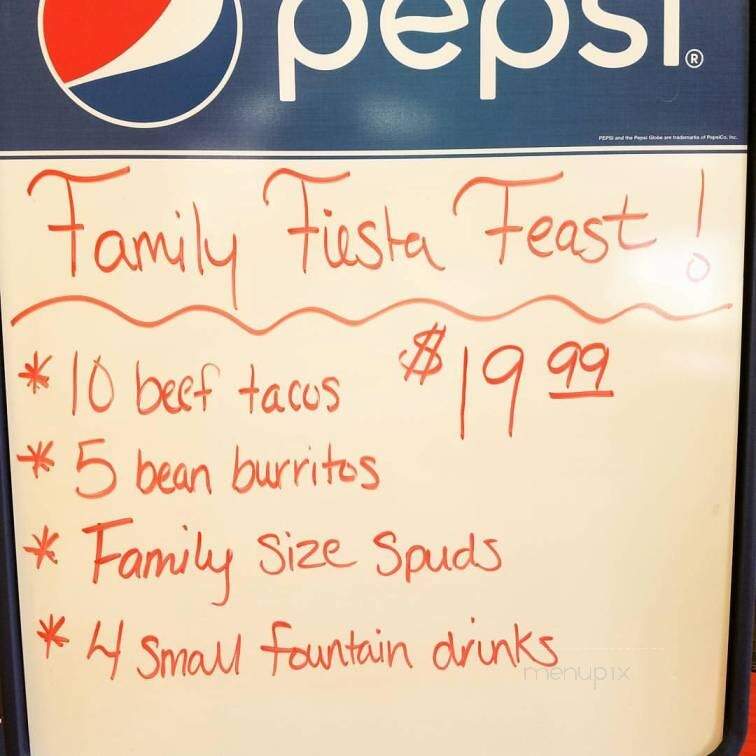 pepsi®
PEPSI and the Pepsi Globe are trademarks of PepsiCo, Inc.
Family Fiesta Feast!
* 10 beef tacos $19 99
* 5 bean burritos
* Family Size Spuds
* 4 Small fountain drinks
menupix